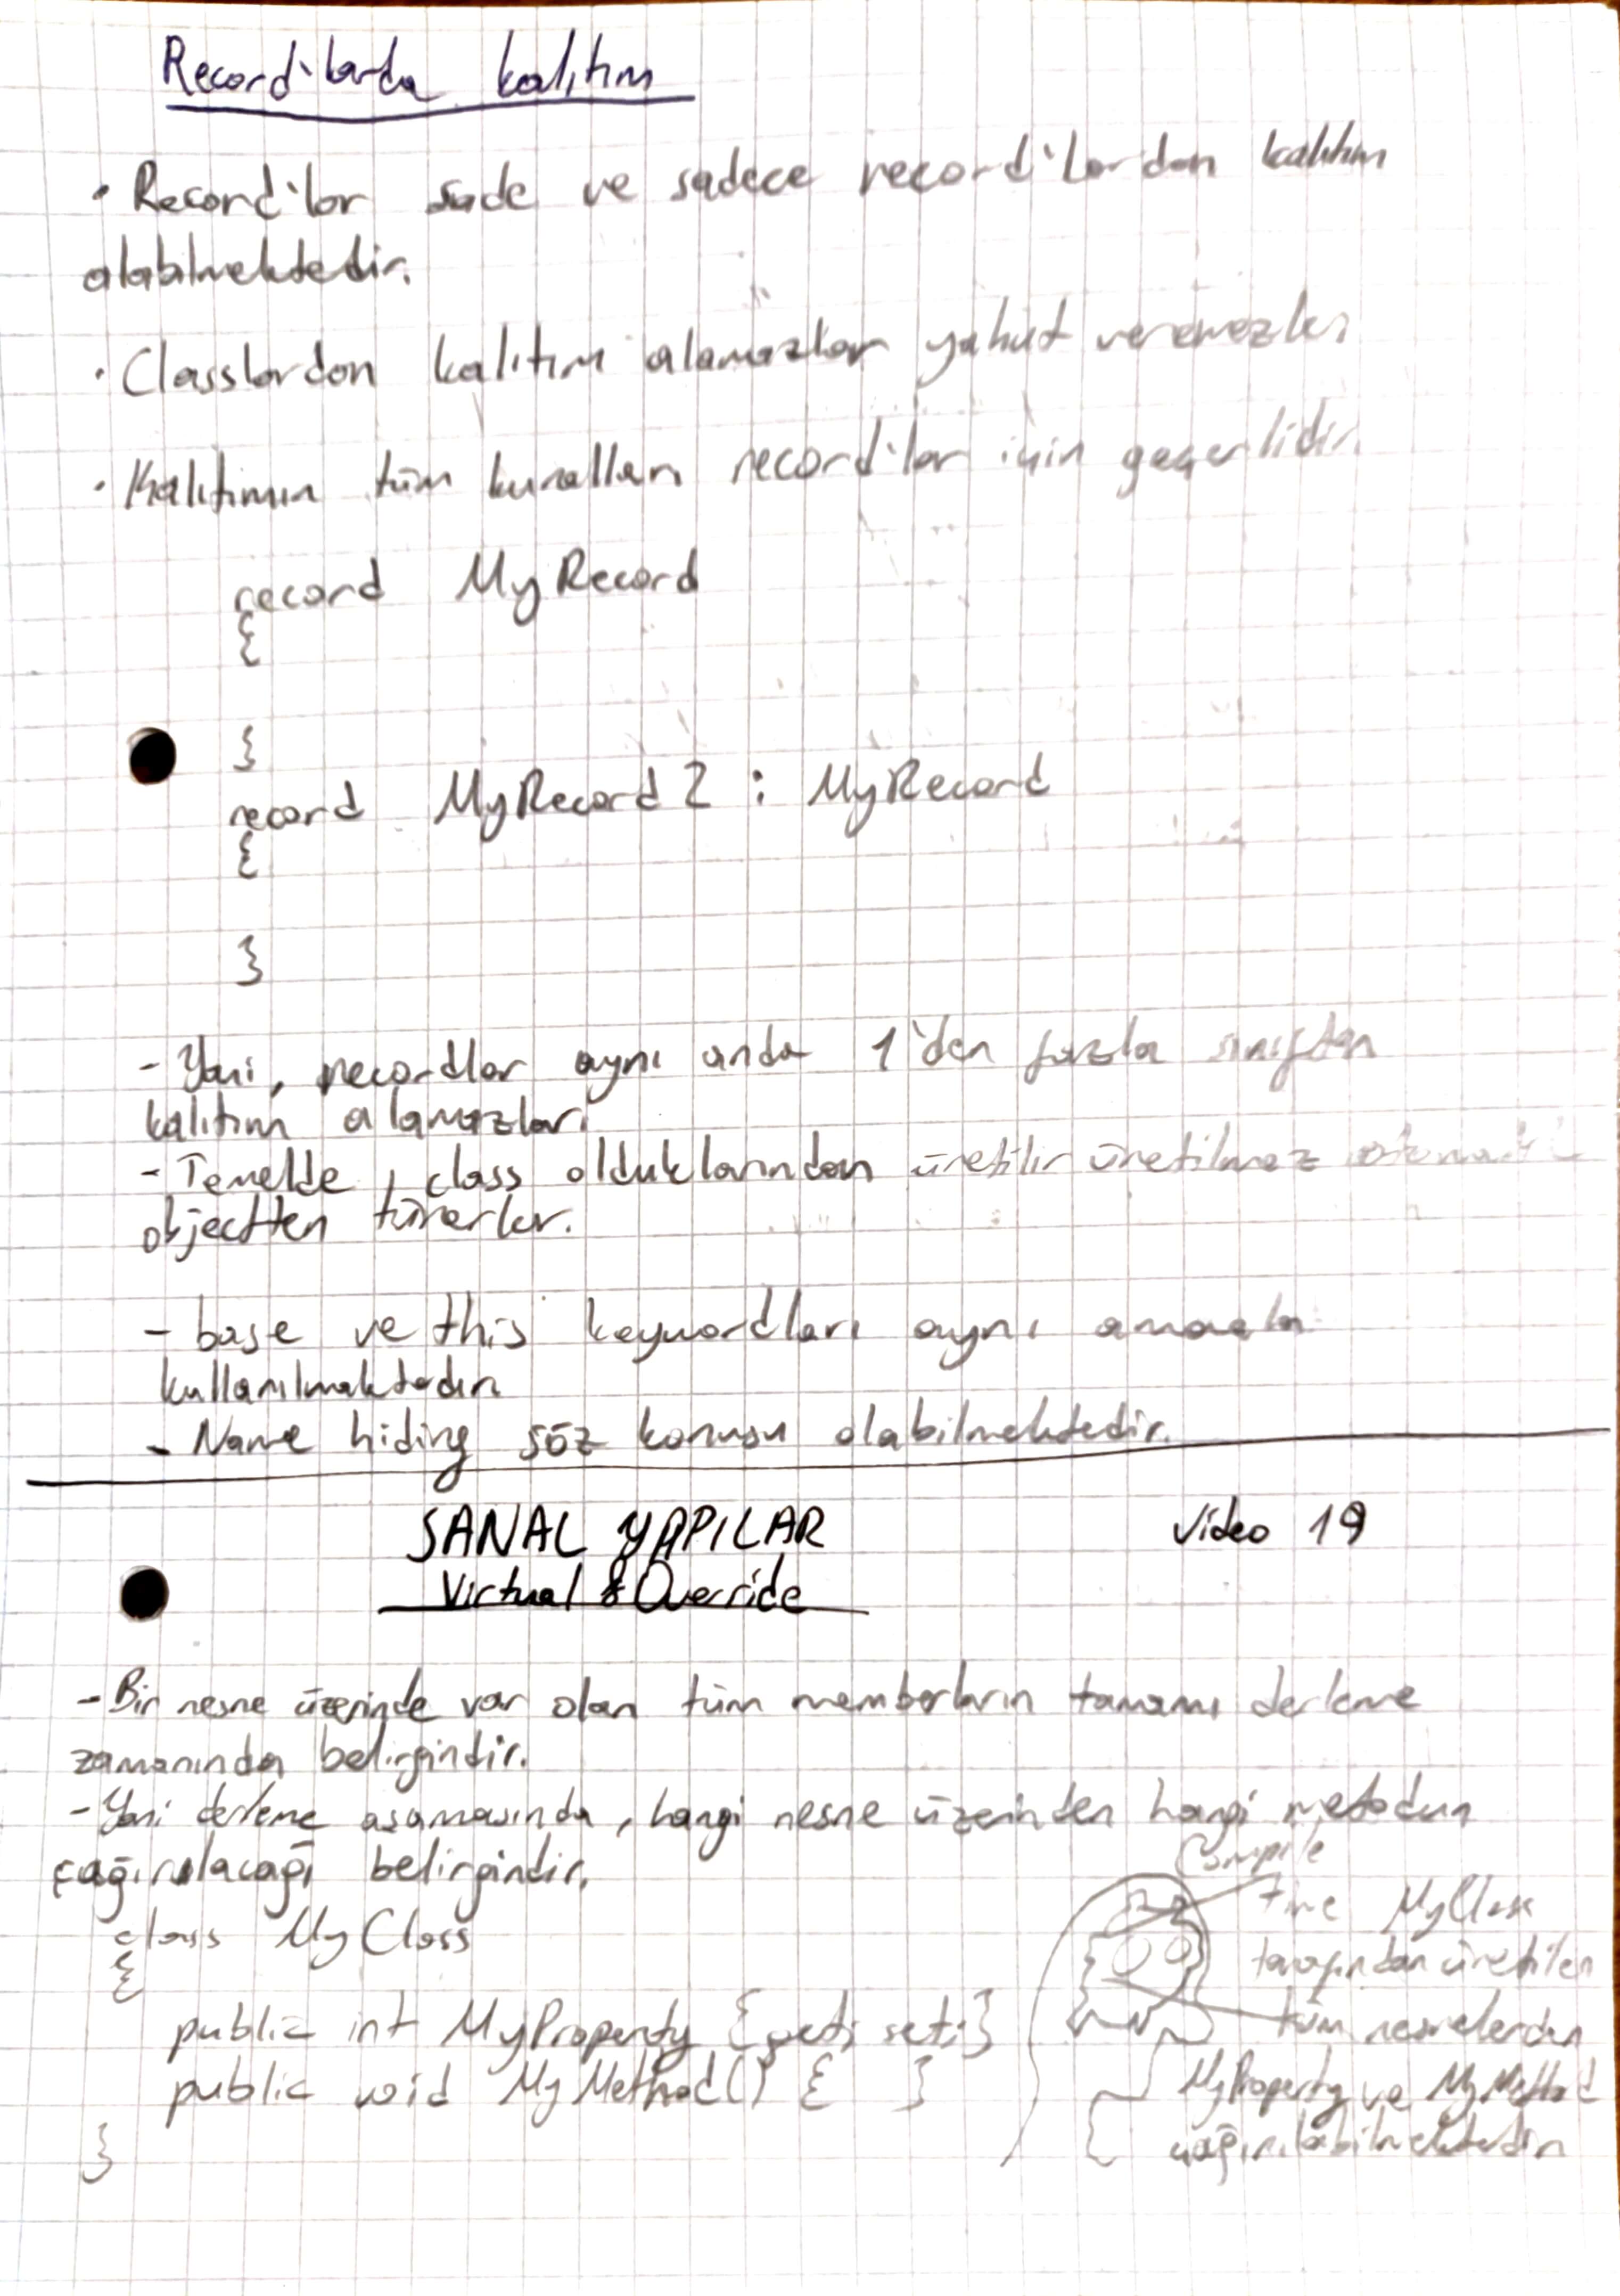 Record'larda kalıtım
• Record'lar sade ve sadece record'lardan kalıtım
alabilmektedir.
• Classlardan kalıtım alamazlar yahut veremezler
• Kalıtımın tüm kuralları record'lar için geçerlidir.
record MyRecord
{
}
record MyRecord2 : MyRecord
{
}
- Yani, recordlar aynı anda 1'den fazla sınıftan
kalıtım alamazlar.
- Temelde, class olduklarından üretilir üretilmez otomatik
objectten türerler.
- base ve this keywordları aynı amaçla
kullanılmaktadır.
- Name hiding söz konusu olabilmektedir.
SANAL YAPILAR
Video 19
Virtual & Override
- Bir nesne üzerinde var olan tüm memberların tamamı derleme
zamanında belirgindir.
- Yani derleme aşamasında, hangi nesne üzerinden hangi metodun
çağırılacağı belirgindir.
class MyClass
{
public int MyProperty {get; set;}
public void MyMethod() { }
}
Compile
Time MyClass
tarafından üretilen
tüm nesnelerden
MyProperty ve MyMethod
çağırılabilmektedir